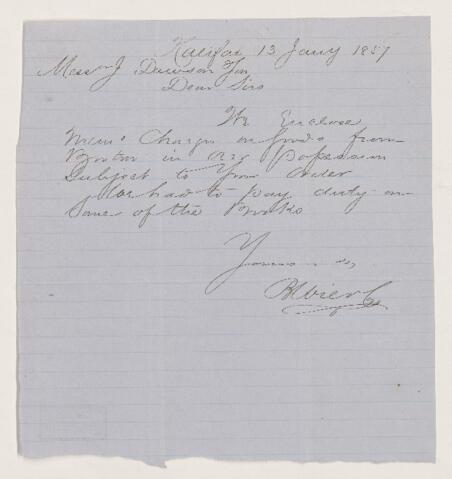 Halifax 13 Jany 1857
Messrs J Dawson & Son
Dear Sirs
We Enclose
Memo Charges on Goods from
Boston in our Possession
Subject to Your order
We had to pay duty on
Some of the Books
Yours
B Wier & Co